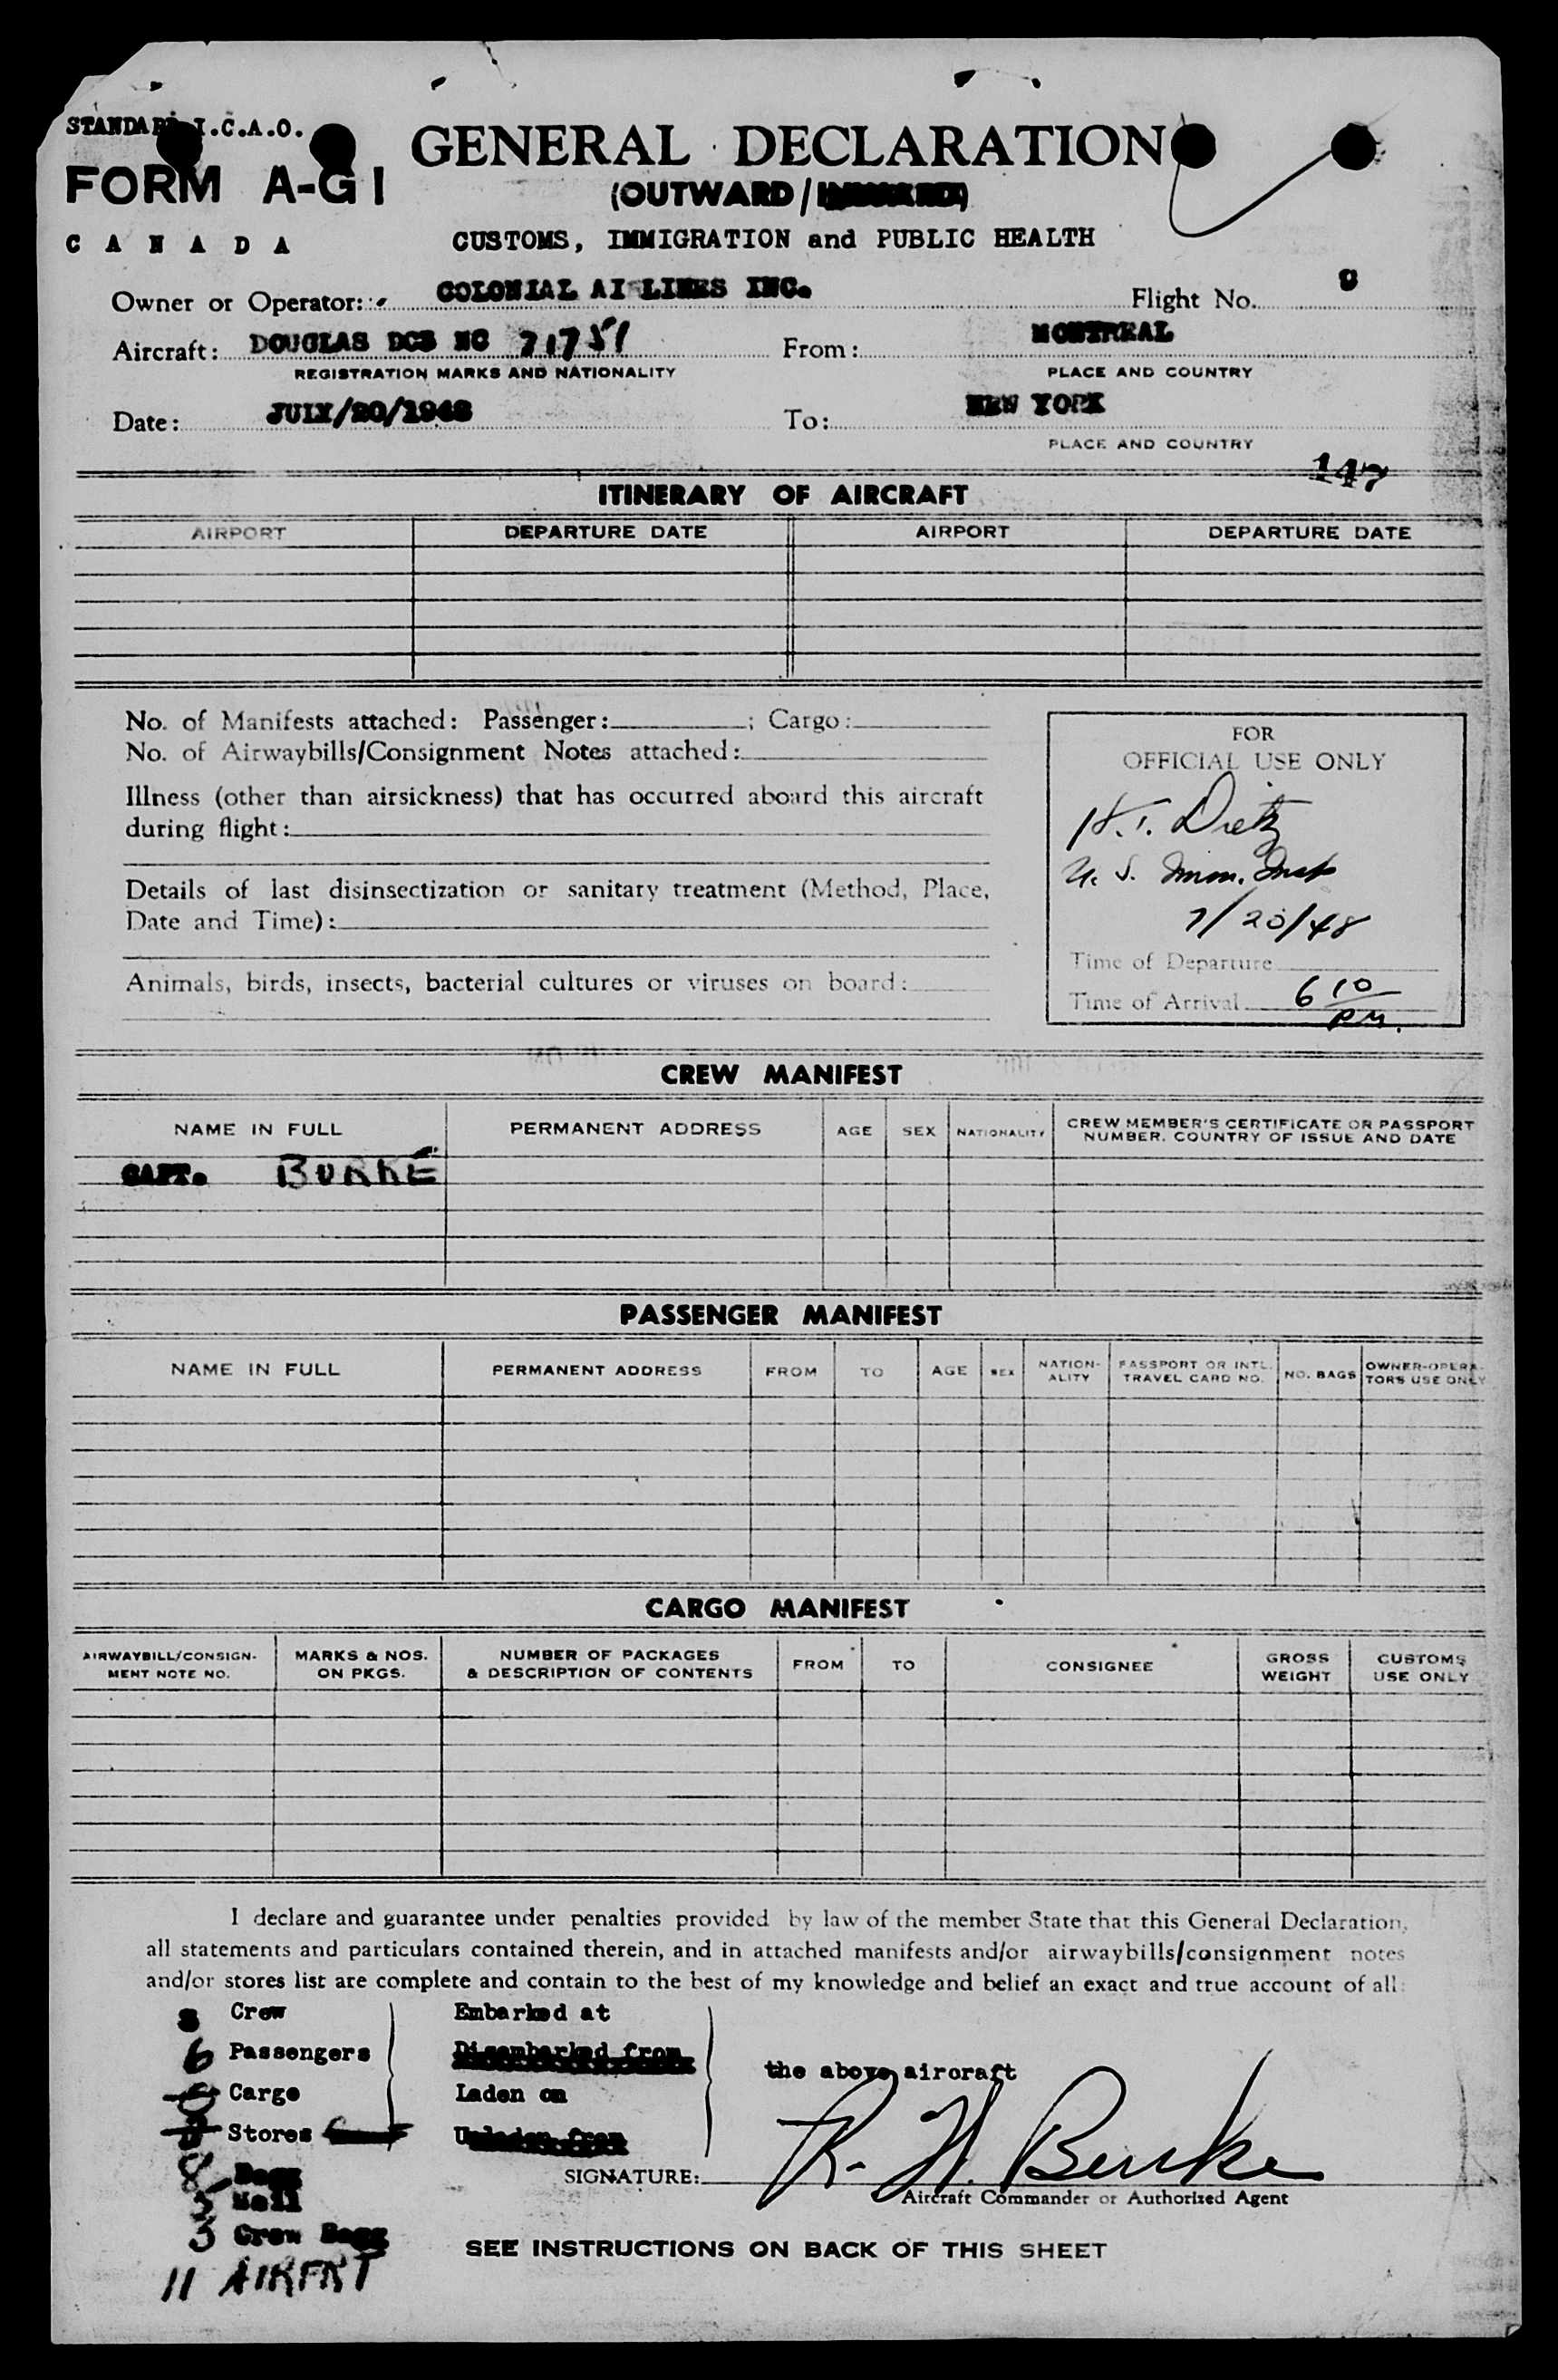 STANDARD I.C.A.O.
FORM A-G1
GENERAL DECLARATION
(OUTWARD/
CANADA
CUSTOMS, IMMIGRATION and PUBLIC HEALTH
Owner or Operator: COLONIAL AI LINES INC.
Flight No.
Aircraft: DOUGLAS DC3 NC 71751
From: MONTREAL
REGISTRATION MARKS AND NATIONALITY
PLACE AND COUNTRY
Date: JULY/20/1948
To: NEW YORK
PLACE AND COUNTRY
147
ITINERARY OF AIRCRAFT
AIRPORT DEPARTURE DATE AIRPORT DEPARTURE DATE
No. of Manifests attached: Passenger: ; Cargo:
No. of Airwaybills/Consignment Notes attached:
Illness (other than airsickness) that has occurred aboard this aircraft
during flight:
Details of last disinsectization or sanitary treatment (Method, Place,
Date and Time):
Animals, birds, insects, bacterial cultures or viruses on board:
FOR
OFFICIAL USE ONLY
H.T. Dietz
U.S. Imm. Insp
7/20/48
Time of Departure
Time of Arrival 6 10
PM.
CREW MANIFEST
NAME IN FULL PERMANENT ADDRESS AGE SEX NATIONALITY CREW MEMBER'S CERTIFICATE OR PASSPORT
NUMBER, COUNTRY OF ISSUE AND DATE
CAPT. BURKE
PASSENGER MANIFEST
NAME IN FULL PERMANENT ADDRESS FROM TO AGE SEX NATION-
ALITY PASSPORT OR INTL.
TRAVEL CARD NO. NO. BAGS OWNER-OPERA-
TORS USE ONLY
CARGO MANIFEST
AIRWAYBILL/CONSIGN-
MENT NOTE NO. MARKS & NOS.
ON PKGS. NUMBER OF PACKAGES
& DESCRIPTION OF CONTENTS FROM TO CONSIGNEE GROSS
WEIGHT CUSTOMS
USE ONLY
I declare and guarantee under penalties provided by law of the member State that this General Declaration,
all statements and particulars contained therein, and in attached manifests and/or airwaybills/consignment notes
and/or stores list are complete and contain to the best of my knowledge and belief an exact and true account of all:
Crew Embarked at
6 Passengers Disembarked from
the above aircraft
Cargo Laden on
Stores Unladen from
8 Bagg
Mail
3 Crew Bagg
11 AIRFRT
SIGNATURE: R. H. Burke
Aircraft Commander or Authorized Agent
SEE INSTRUCTIONS ON BACK OF THIS SHEET